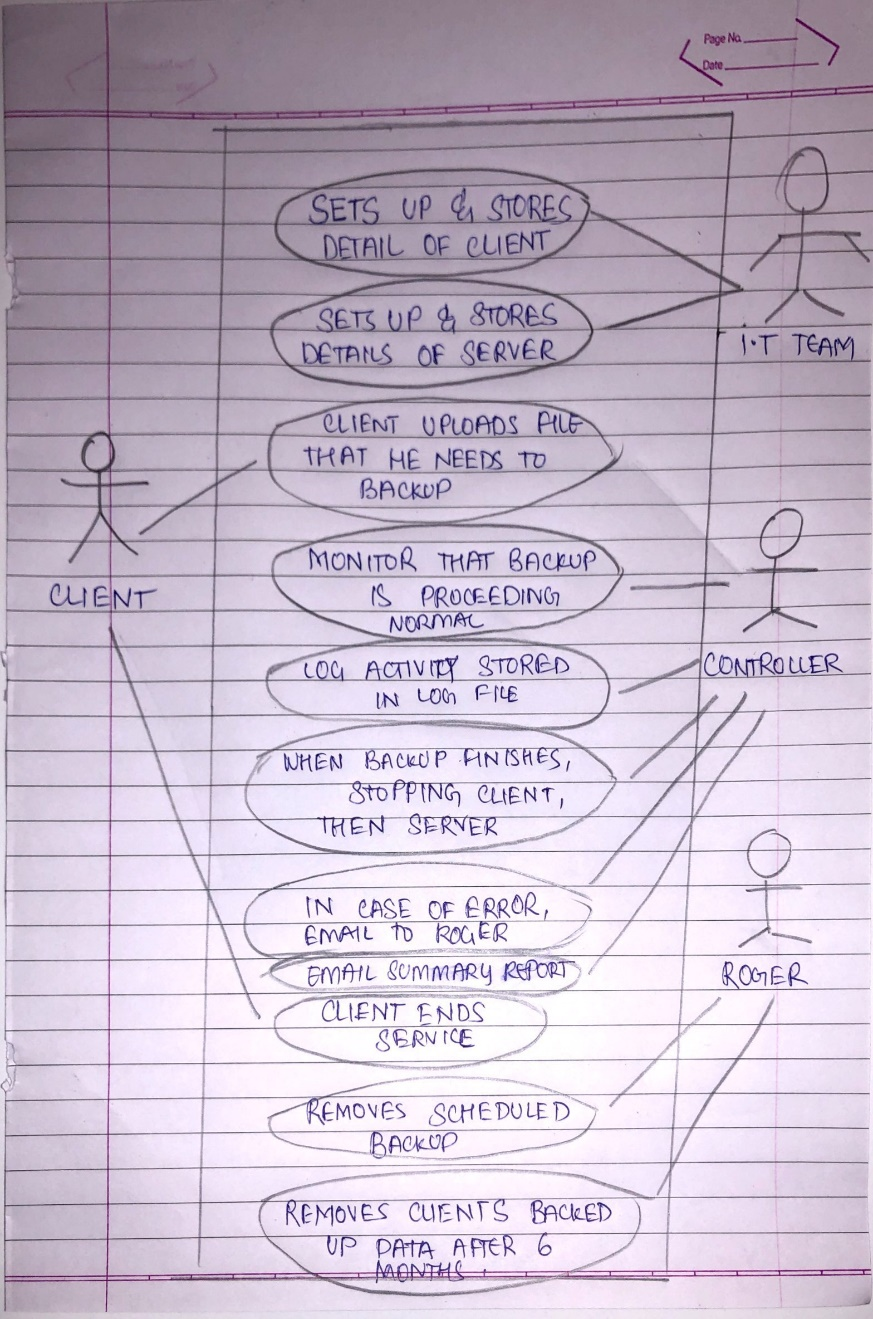 Page No.
Date
SETS UP & STORES
DETAIL OF CLIENT
SETS UP & STORES
DETAILS OF SERVER
I.T TEAM
CLIENT UPLOADS FILE
THAT HE NEEDS TO
BACKUP
CLIENT
MONITOR THAT BACKUP
IS PROCEEDING
NORMAL
CONTROLLER
LOG ACTIVITY STORED
IN LOG FILE
WHEN BACKUP FINISHES,
STOPPING CLIENT,
THEN SERVER
IN CASE OF ERROR,
EMAIL TO ROGER
EMAIL SUMMARY REPORT
ROGER
CLIENT ENDS
SERVICE
REMOVES SCHEDULED
BACKUP
REMOVES CLIENTS BACKED
UP DATA AFTER 6
MONTHS.